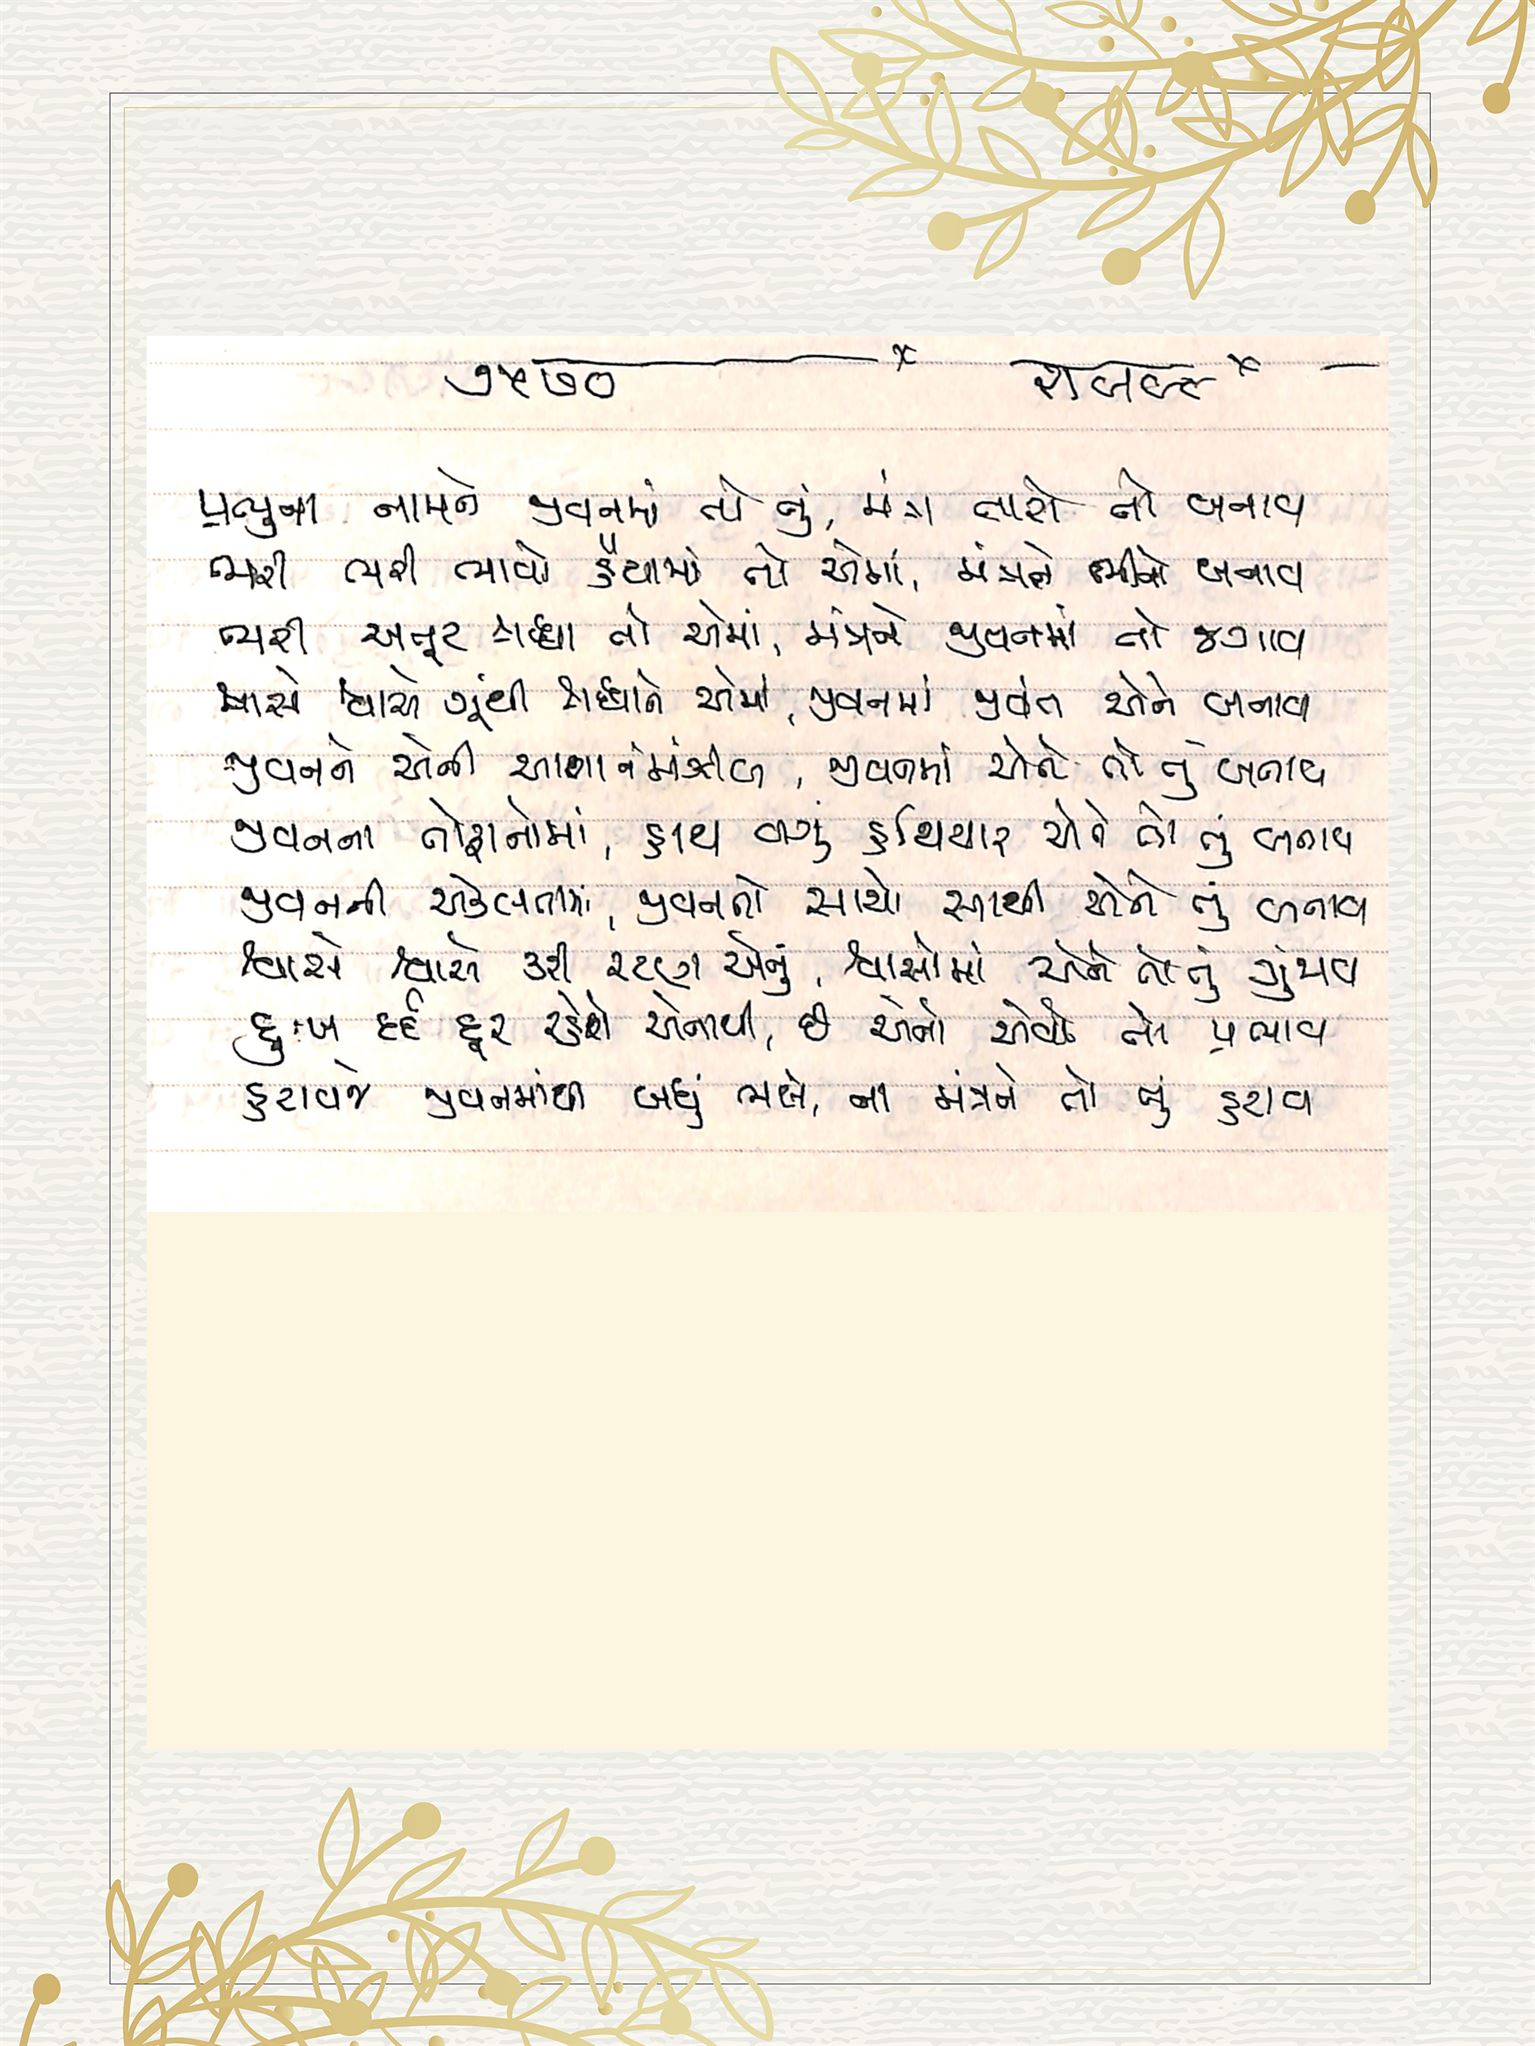 ૭૫૭૦
પ્રભુના નામને જીવનમાં તો તું, મંત્ર તારો તો બનાવ
ભરી ભરી ભાવો હૈયામાં તો એમાં, મંત્રને ભીનો બનાવ
ભરી અતૂટ શ્રદ્ધા તો એમાં, મંત્રને જીવનમાં તો જગાવ
શ્વાસે શ્વાસે ગૂંથી શ્રદ્ધાને એમાં, જીવનમાં જીવંત એને બનાવ
જીવનને એની, જીવનમાં એને તો તું બનાવ
જીવનના તોફાનોમાં, હાથ વગું હથિયાર એને તો તું બનાવ
જીવનની એકલતામાં, જીવનનો સાચો સાથી એને તું બનાવ
શ્વાસે શ્વાસે કરી રટણ એનું, શ્વાસોમાં એને તો તું ગુંથાવ
દુઃખ દર્દ દૂર રહેશે એનાથી, છે એનો એવો તો પ્રભાવ
હટાવજે જીવનમાંથી બધું ભલે, ના મંત્રને તો તું હટાવ